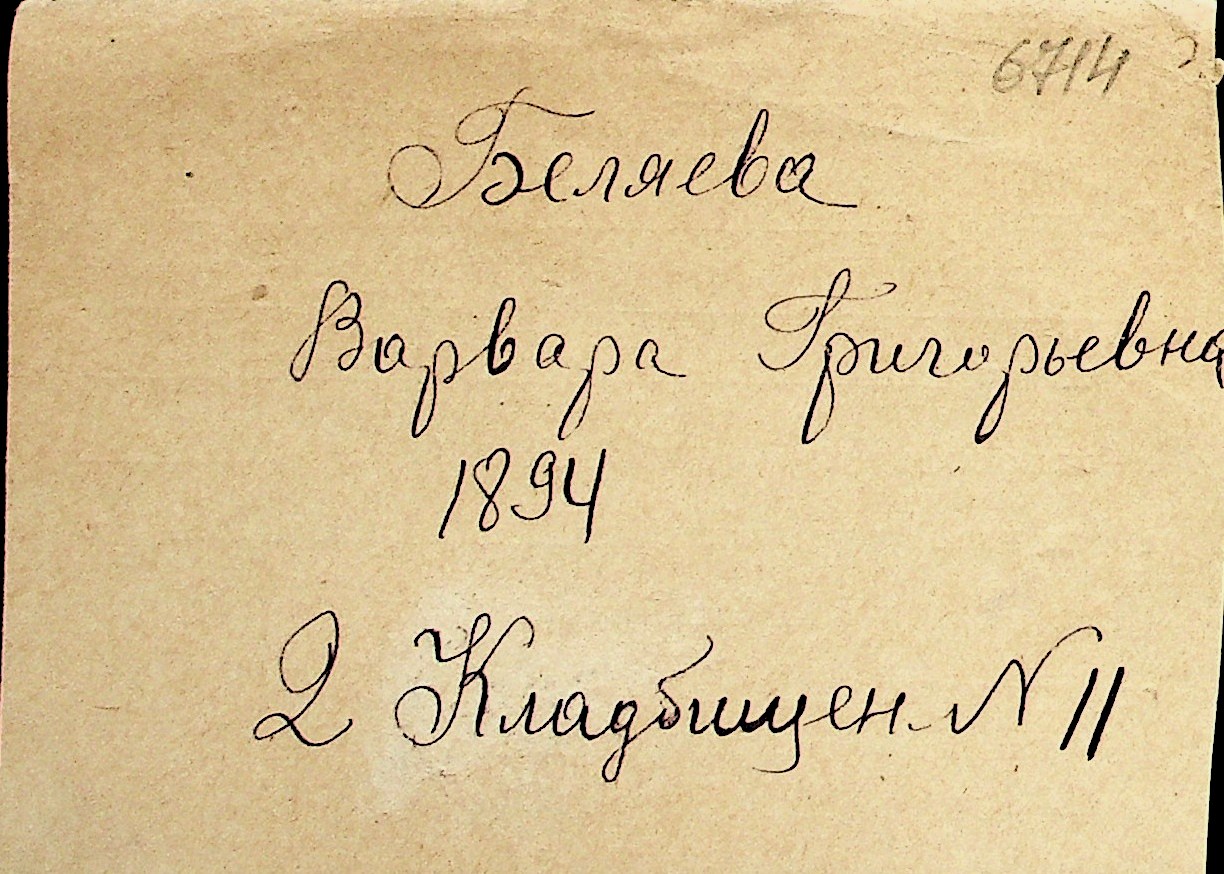 6714
Беляева
Варвара Григорьевна
1894
2 Кладбищен. N 11